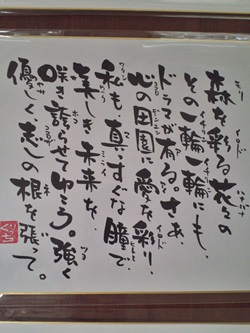 森を彩る花々の
その一輪一輪にも、
ドラマが有る。さあ
心の田園に愛を彩り、
私も、真っすぐな瞳で、
美しき未来を、
咲き誇らせてゆこう。強く
優しく、志しの根を張って。